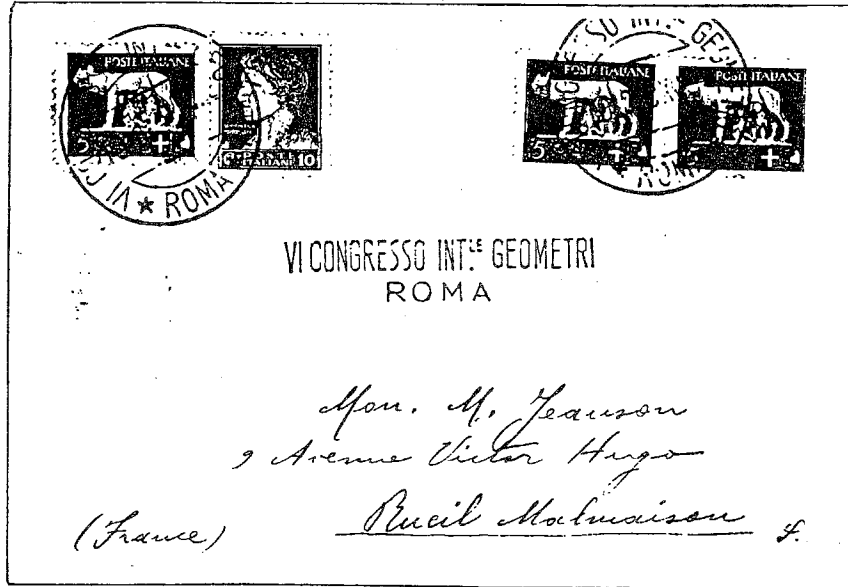 POSTE ITALIANE
5
10
POSTE ITALIANE
5
POSTE ITALIANE
5
VI CO
★ ROMA
SO INT.LE GE
VI CONGRESSO INT.LE GEOMETRI
ROMA
Mon. M. Jeanson
9 Avenue Victor Hugo
Rueil Malmaison
(France)